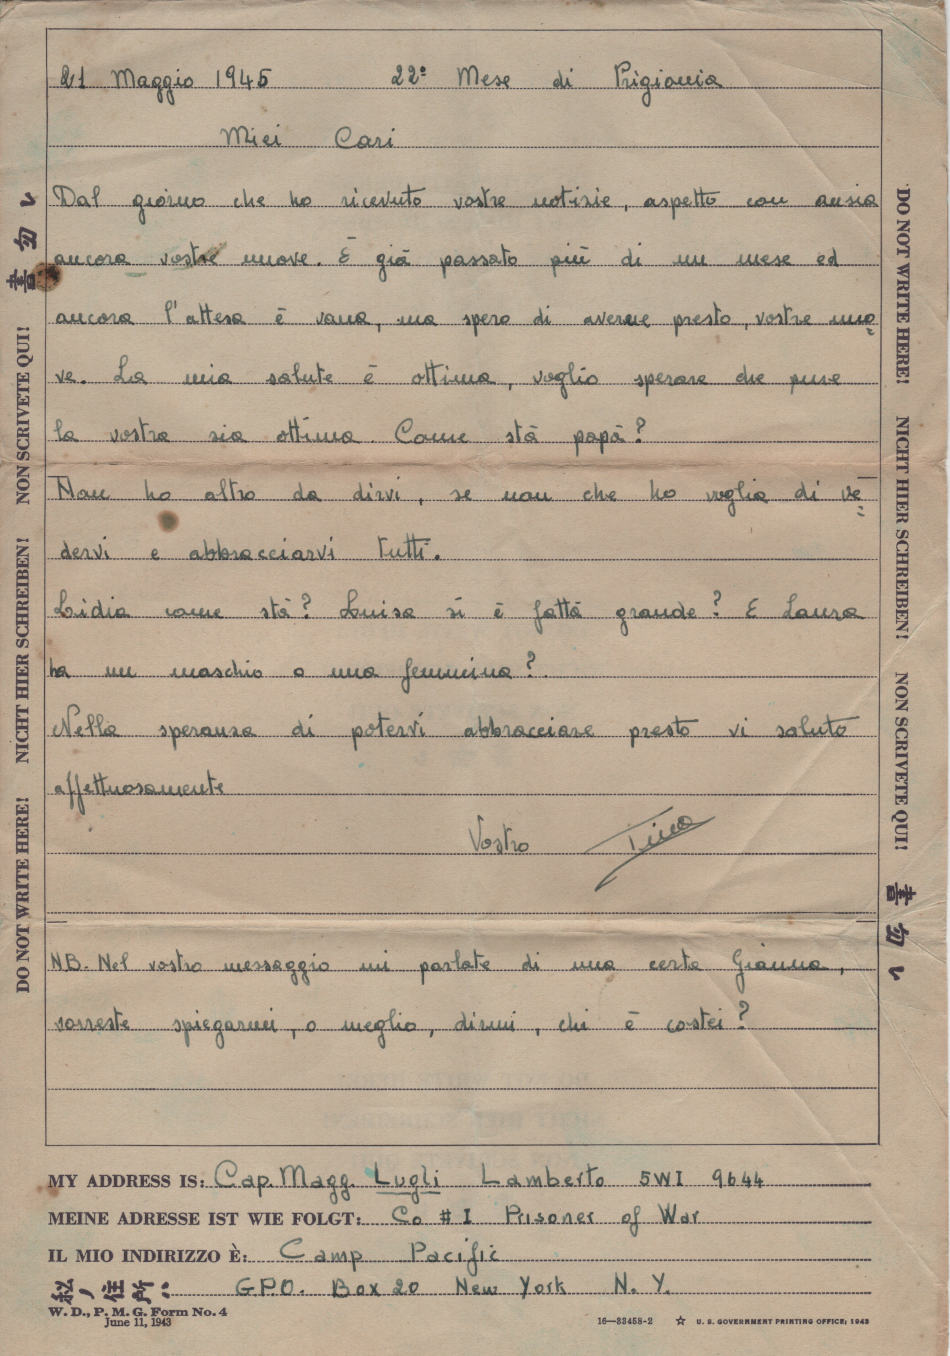 21 Maggio 1945 22º Mese di Prigionia
Miei Cari
Dal giorno che ho ricevuto vostre notizie, aspetto con ansia
ancora vostre nuove. È già passato più di un mese ed
ancora l'attesa è vana, ma spero di averne presto, vostre nuo=
ve. La mia salute è ottima, voglio sperare che pure
la vostra sia ottima. Come stà papà?
Non ho altro da dirvi, se non che ho voglia di ve=
dervi e abbracciarvi tutti.
Lidia come stà? Luisa si è fattà grande? E Laura
ha un maschio o una femmina?
Nella speranza di potervi abbracciare presto vi saluto
affettuosamente
Vostro Tino
NB. Nel vostro messaggio mi parlate di una certa Gianna,
vorreste spiegarmi, o meglio, dirmi, chi è costei?
MY ADDRESS IS: Cap. Magg. Lugli Lamberto 5WI 9644
MEINE ADRESSE IST WIE FOLGT: Co # I Prisoner of War
IL MIO INDIRIZZO È: Camp Pacific
私ノ住所: G.P.O. Box 20 New York N. Y.
W. D., P. M. G. Form No. 4
June 11, 1943
16—33458-2 ☆ U. S. GOVERNMENT PRINTING OFFICE: 1943
DO NOT WRITE HERE! NICHT HIER SCHREIBEN! NON SCRIVETE QUI! 書勿レ
DO NOT WRITE HERE! NICHT HIER SCHREIBEN! NON SCRIVETE QUI! 書勿レ